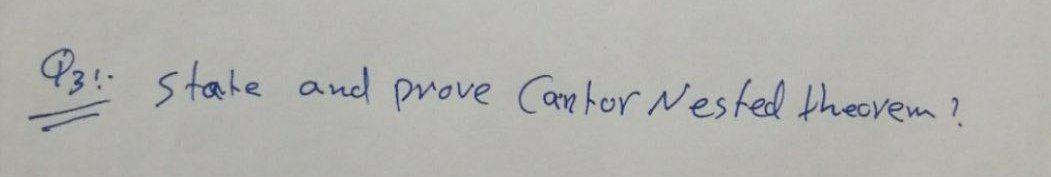 Q3:. State and prove Cantor Nested theorem?